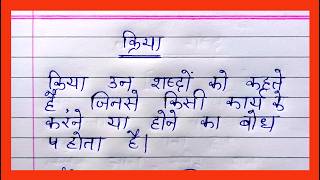 क्रिया
क्रिया उन शब्दों को कहते
है, जिनसे किसी कार्य के
करने या होने का बोध
प होता है।